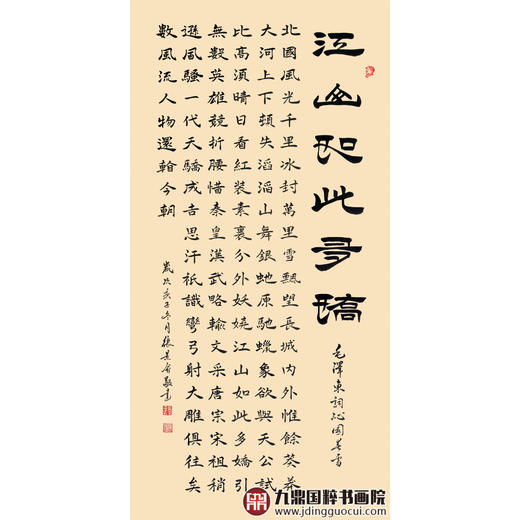 江山如此多嬌
毛澤東詞沁園春雪
北國風光千里冰封萬里雪飄望長城內外惟餘莽莽
大河上下頓失滔滔山舞銀蛇原馳蠟象欲與天公試
比高須晴日看紅裝素裹分外妖嬈江山如此多嬌引
無數英雄競折腰惜秦皇漢武略輸文采唐宗宋祖稍
遜風騷一代天驕成吉思汗祇識彎弓射大雕俱往矣
數風流人物還看今朝
歲次
九鼎国粹书画院
www.jdingguocui.com